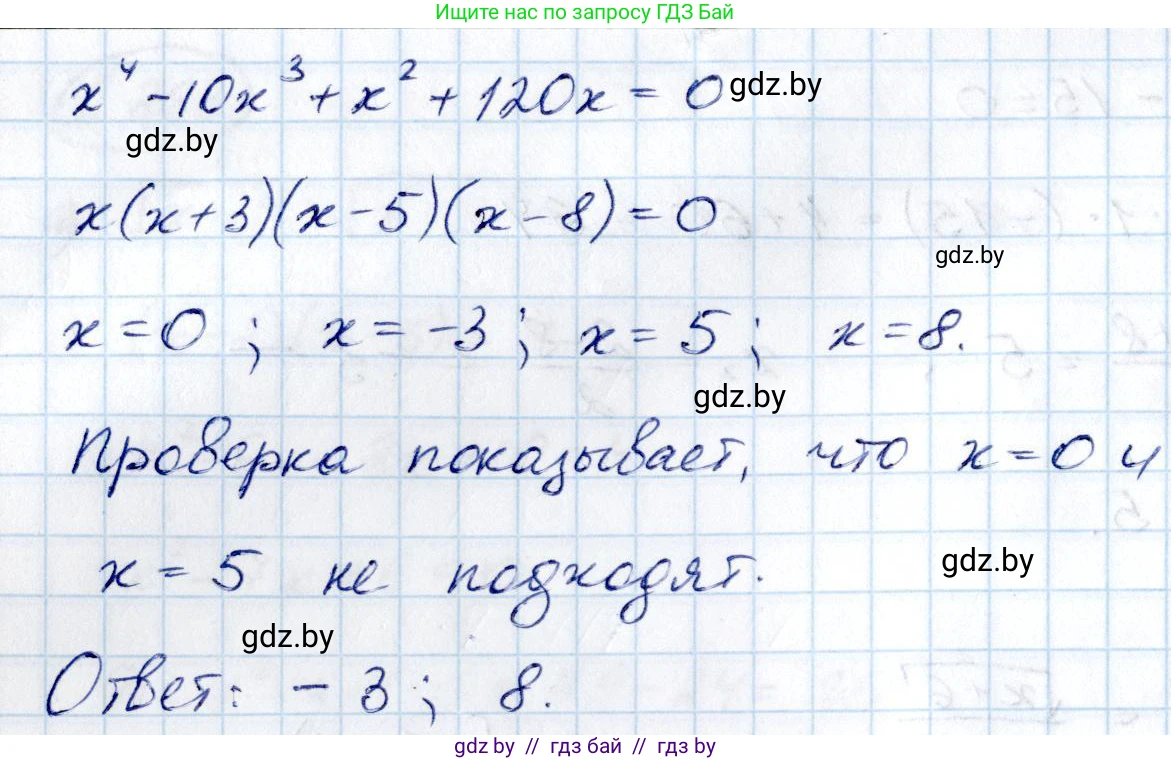 Ищите нас по запросу ГДЗ Бай
x⁴ - 10x³ + x² + 120x = 0 gdz.by
gdz.by
x(x+3)(x-5)(x-8) = 0
gdz.by
x = 0 ; x = -3 ; x = 5 ; x = 8.
gdz.by
Проверка показывает, что x = 0 и
x = 5 не подходят.
gdz.by
gdz.by
Ответ: - 3 ; 8.
gdz.by // гдз бай // гдз by